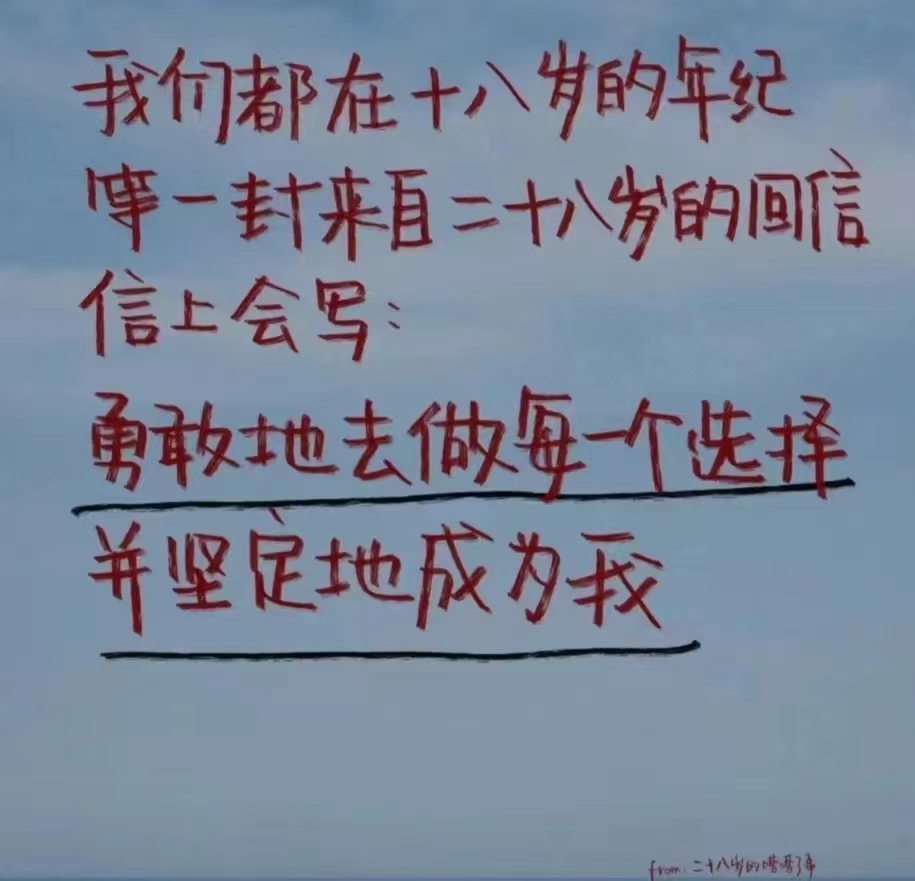 我们都在十八岁的年纪
等一封来自二十八岁的回信
信上会写:
勇敢地去做每一个选择
并坚定地成为我
from: 二十八岁的